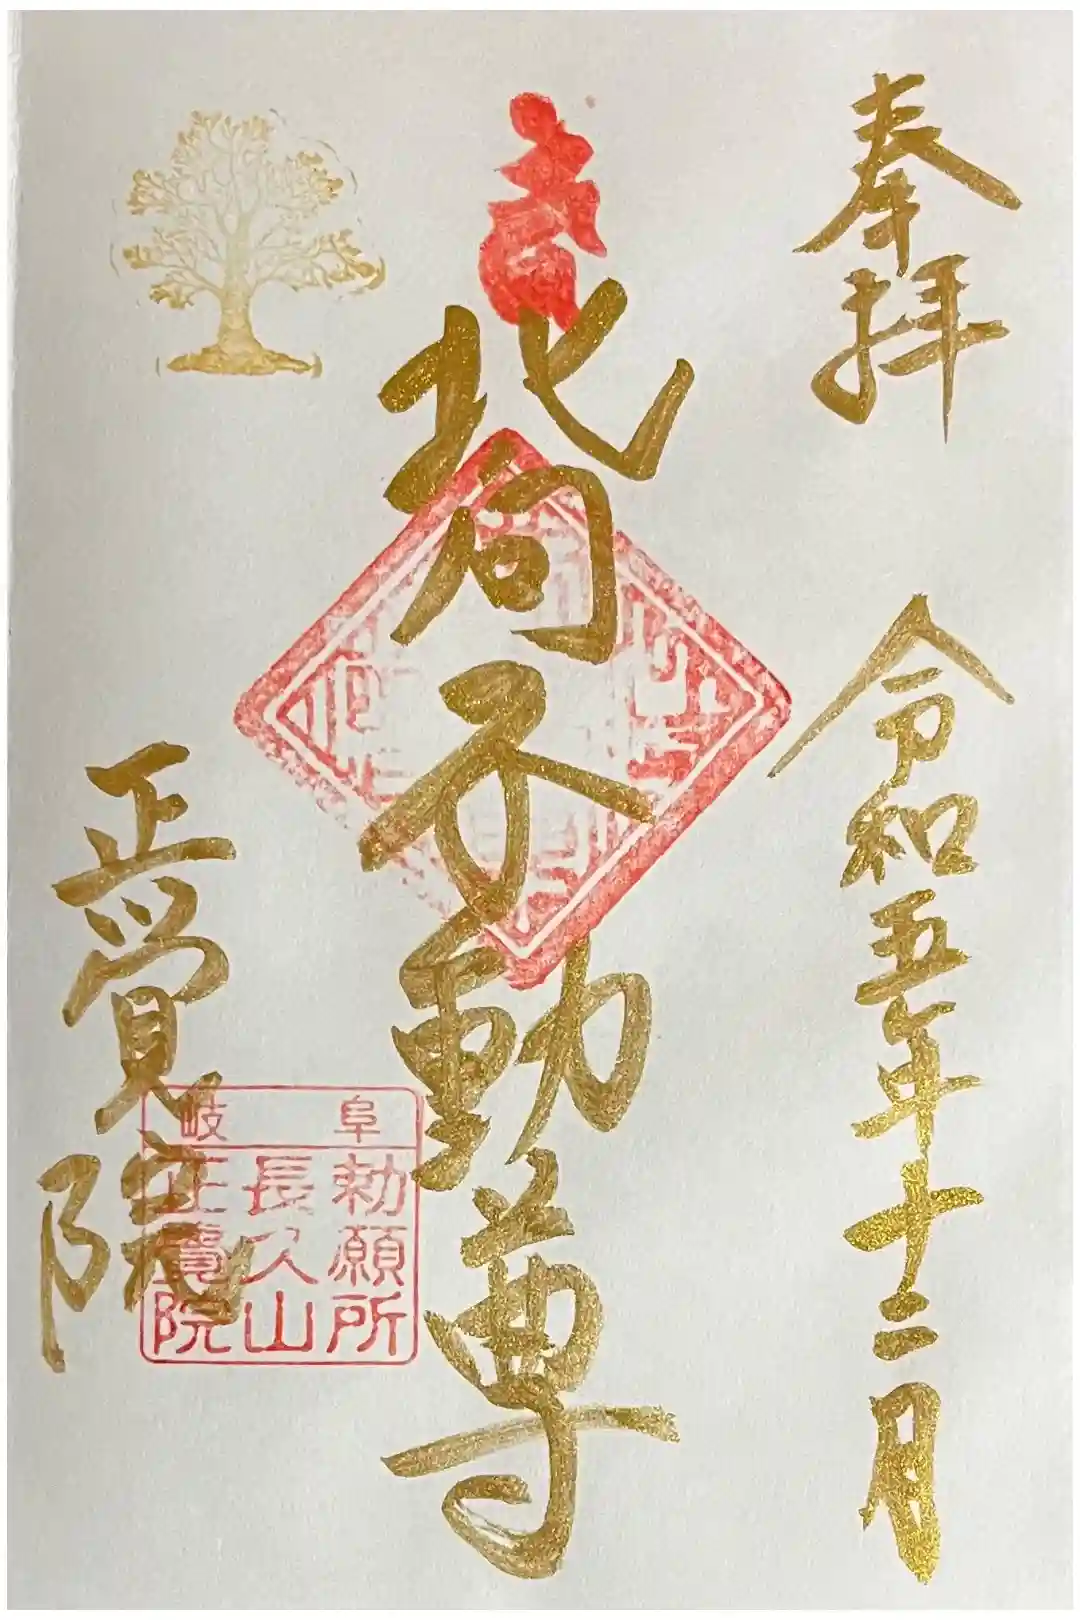 奉拝
令和五年十二月
北向不動尊
正覚院
岐阜
勅願所
長久山
正覺院